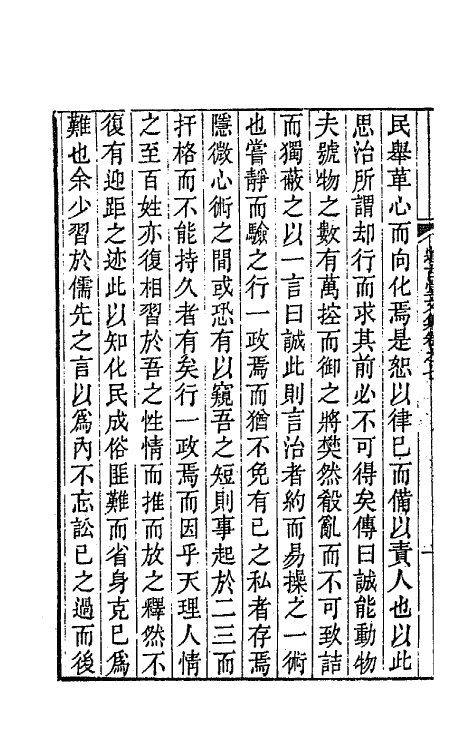 民舉革心而向化焉是恕以律已而備以責人也以此
思治所謂却行而求其前必不可得矣傳曰誠能動物
夫號物之數有萬控而御之將樊然殽亂而不可致詰
而獨蔽之以一言曰誠此則言治者約而易操之一術
也嘗靜而驗之行一政焉而猶不免有已之私者存焉
隱微心術之間或恐有以窺吾之短則事起於二三而
扞格而不能持久者有矣行一政焉而因乎天理人情
之至百姓亦復相習於吾之性情而推而放之釋然不
復有迎距之迹此以知化民成俗匪難而省身克已爲
難也余少習於儒先之言以爲內不忘訟已之過而後